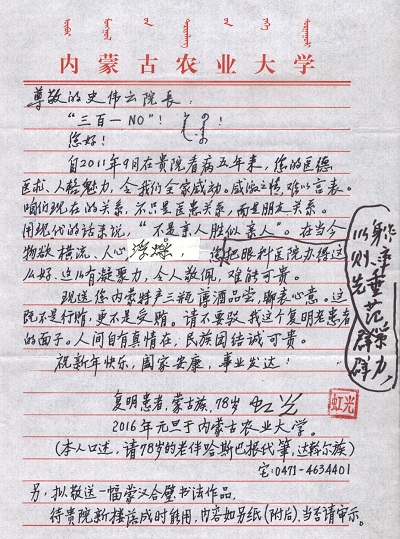 内蒙古农业大学
尊敬的史伟云院长：
“三百一NO”！
您好！
自2011年9月在贵院看病五年来，您的医德
医术、人格魅力，令我们全家感动。感激之情难以言表。
咱们现在的关系，不只是医患关系，而是朋友关系。
用现代的话来说，“不是亲人胜似亲人”。在当今
物欲横流、人心浮躁，您把眼科医院办得这
么好，这么有凝聚力，令人敬佩，难能可贵。
以身作则，率先垂范，群策群力，
现送您内蒙特产三瓶薄酒品尝，聊表心意。这
既不是行贿，更不是受贿。请不要驳我这个复明老患者
的面子。人间自有真情在，民族团结诚可贵。
祝新年快乐，国家安康，事业发达！
复明患者，蒙古族，78岁 虹光
虹光
2016年元旦于内蒙古农业大学。
（本人口述，请78岁的老伴哈斯巴根代笔，达斡尔族）
宅：0471-4634401
另，拟敬送一幅蒙汉合璧书法作品，
待贵院新楼落成时能用，内容如另纸（附后），当否请审示。